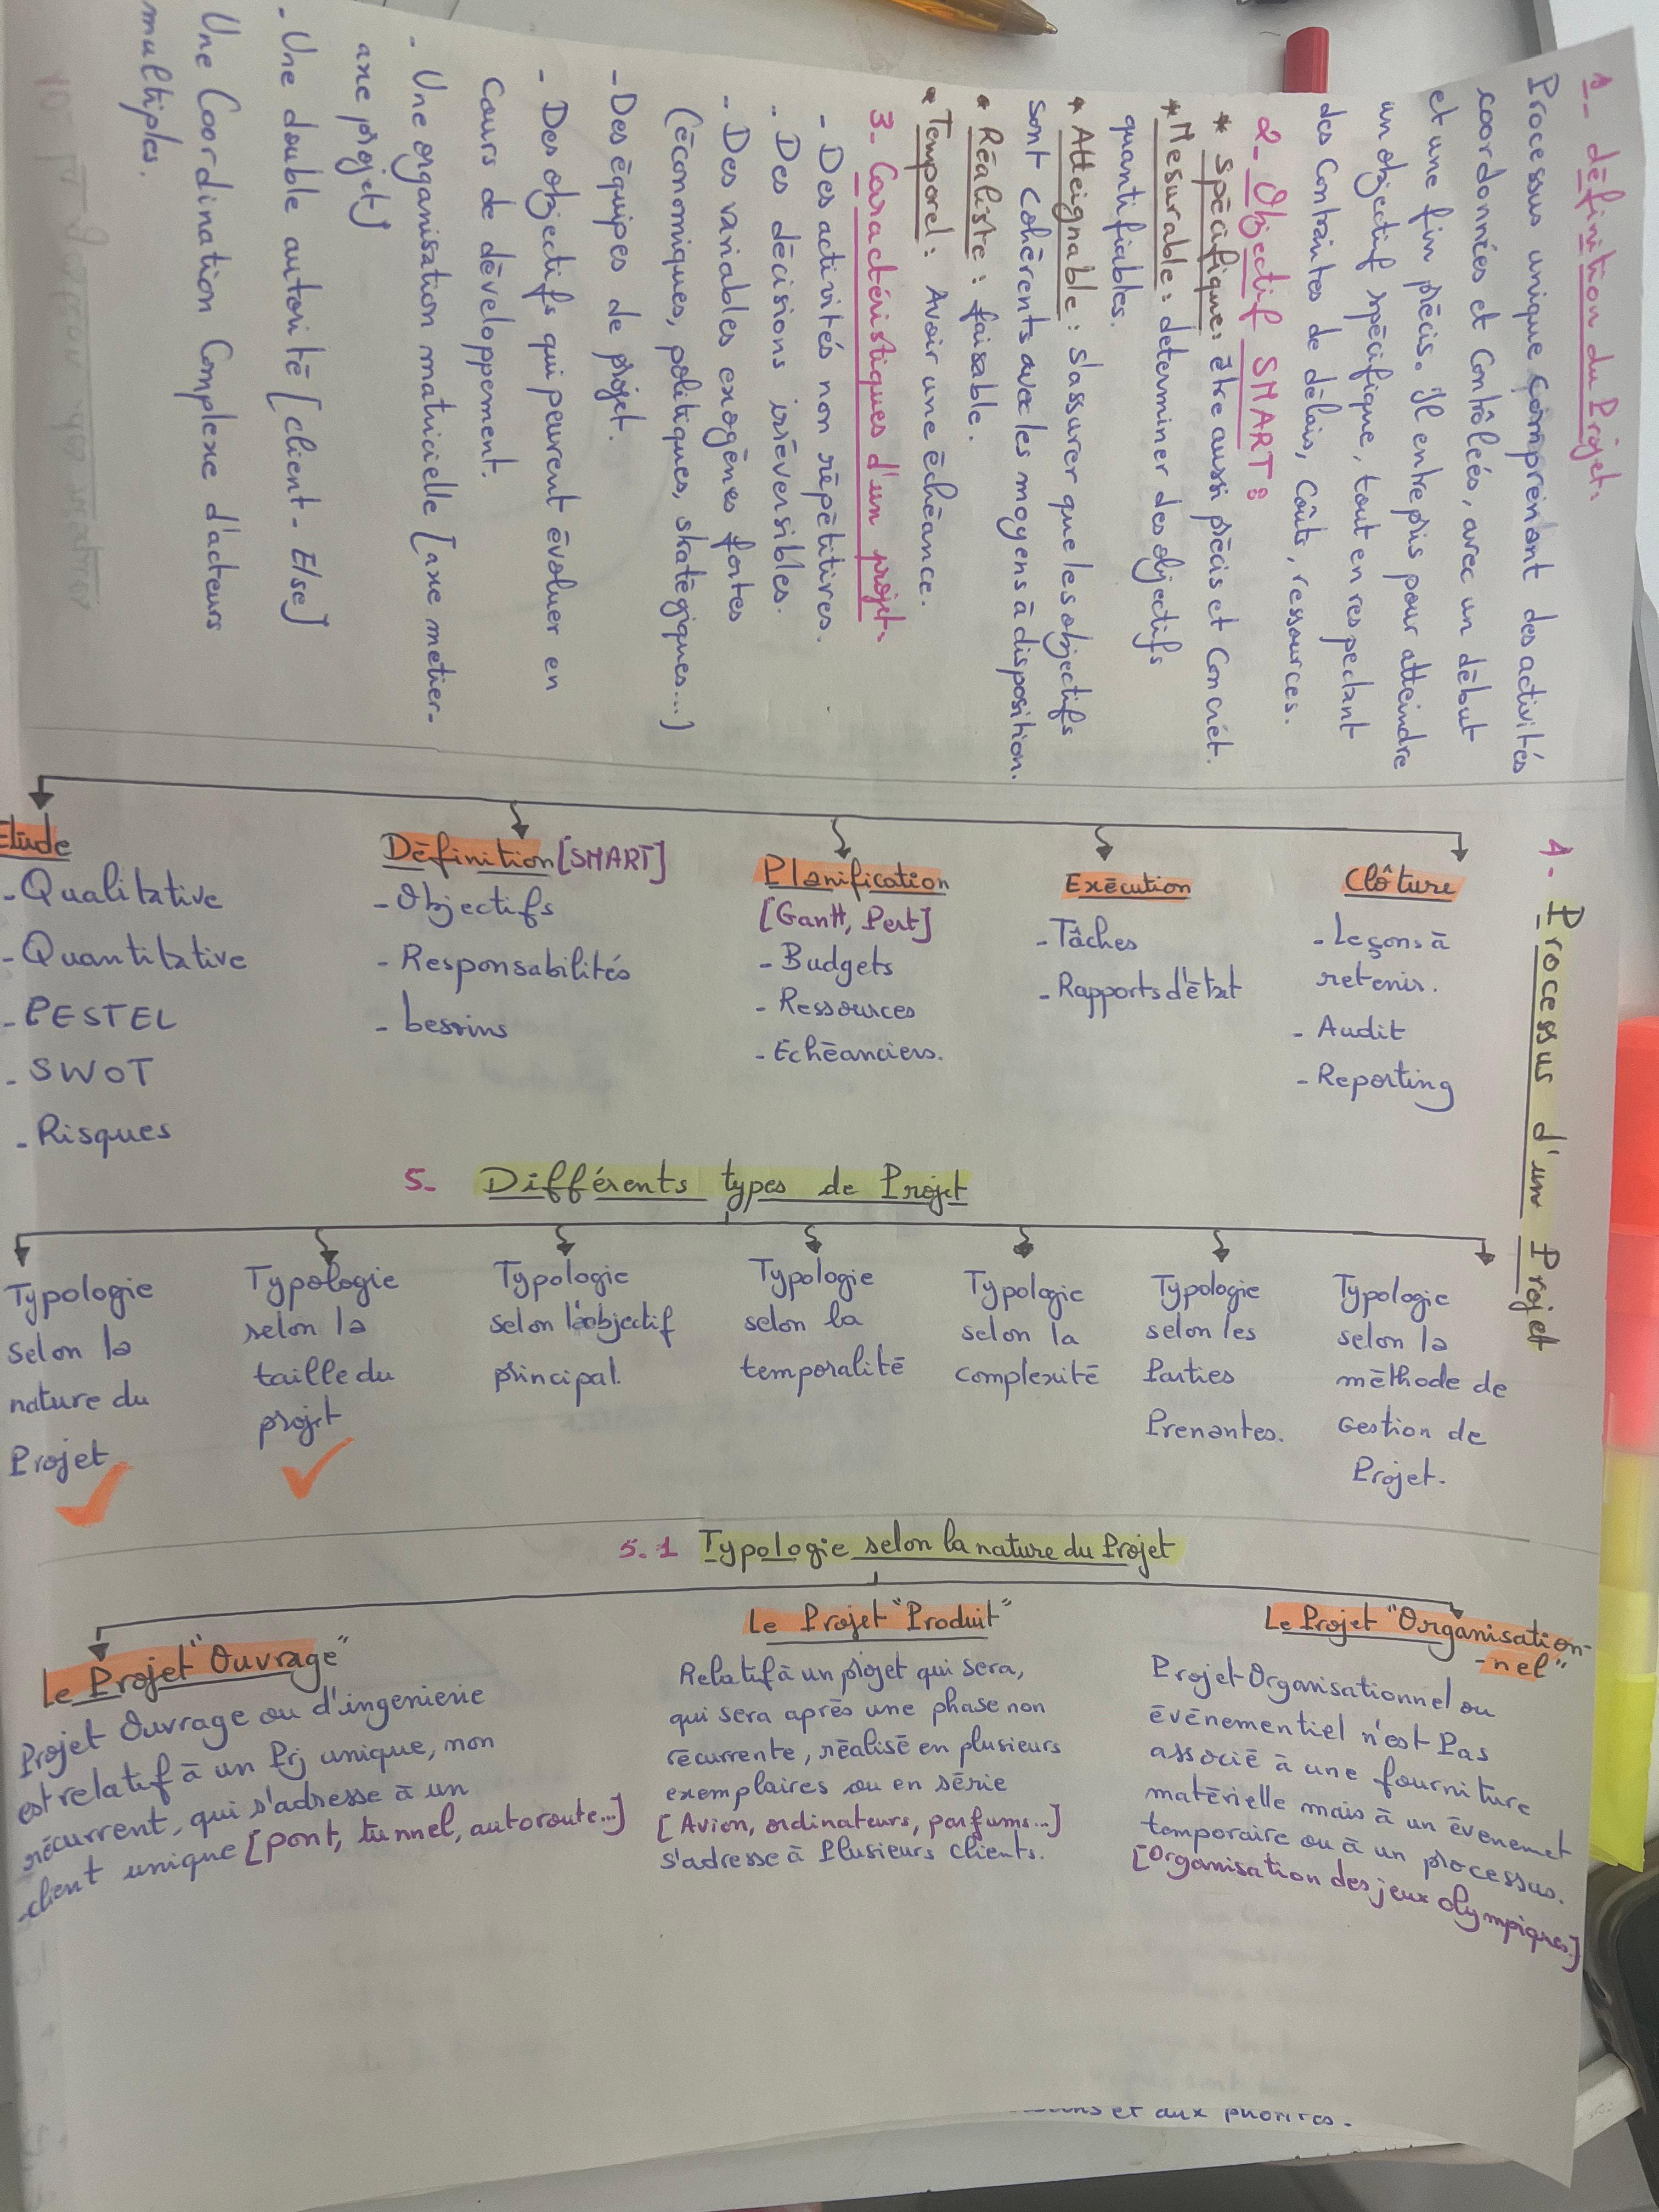 1- définition du Projet:
Processus unique comprenant des activités
coordonnées et Contrôleés, avec un début
et une fin précis. Il entrepris pour atteindre
un objectif spécifique, tout en respectant
des Contraintes de délais, Coûts, ressources.
2- Objectif SMART:
* Spécifique: être aussi précis et Concrét.
* Mesurable: determiner des objectifs
quantifiables.
* Atteignable: s'assurer que les objectifs
sont Cohérents avec les moyens à disposition.
* Réaliste: faisable.
* Temporel: Avoir une échéance.
3- Caractéristiques d'un projet:
- Des activités non répétitives.
- Des décisions irréversibles.
- Des variables exogènes fortes
(économiques, politiques, stratégiques...)
- Des équipes de projet.
- Des objectifs qui peuvent évoluer en
Cours de développement.
- Une organisation matricielle [axe metier-
axe projet]
- Une double autorité [client - Else]
Une Coordination Complexe d'acteurs
multiples.
1- Processus d'un Projet
Etude
- Qualitative
- Quantitative
- PESTEL
- SWOT
- Risques
Définition [SMART]
- Objectifs
- Responsabilités
- besoins
Planification
[Gantt, Pert]
- Budgets
- Ressources
- Echéanciers.
Exécution
- Tâches
- Rapports d'état
Clôture
- Leçons à
retenir.
- Audit
- Reporting
5- Différents types de Projet
Typologie
selon la
nature du
Projet
Typologie
selon la
taille du
projet
Typologie
selon l'objectif
principal.
Typologie
selon la
temporalité
Typologie
selon la
complexité
Typologie
selon les
Parties
Prenantes.
Typologie
selon la
méthode de
Gestion de
Projet.
5.1 Typologie selon la nature du Projet
Le Projet "Ouvrage"
Projet Ouvrage ou d'ingenierie
est relatif à un Prj unique, non
récurrent, qui s'adresse à un
client unique [pont, tunnel, autoroute...]
Le Projet "Produit"
Relatif à un projet qui sera,
qui sera après une phase non
récurrente, réalisé en plusieurs
exemplaires ou en série
[Avion, ordinateurs, parfums...]
s'adresse à Plusieurs clients.
Le Projet "Organisation-
-nel"
Projet Organisationnel ou
événementiel n'est Pas
associé à une fourniture
matérielle mais à un évenemet
temporaire ou à un processus.
[Organisation des jeux Olympiques]
et aux priorités.